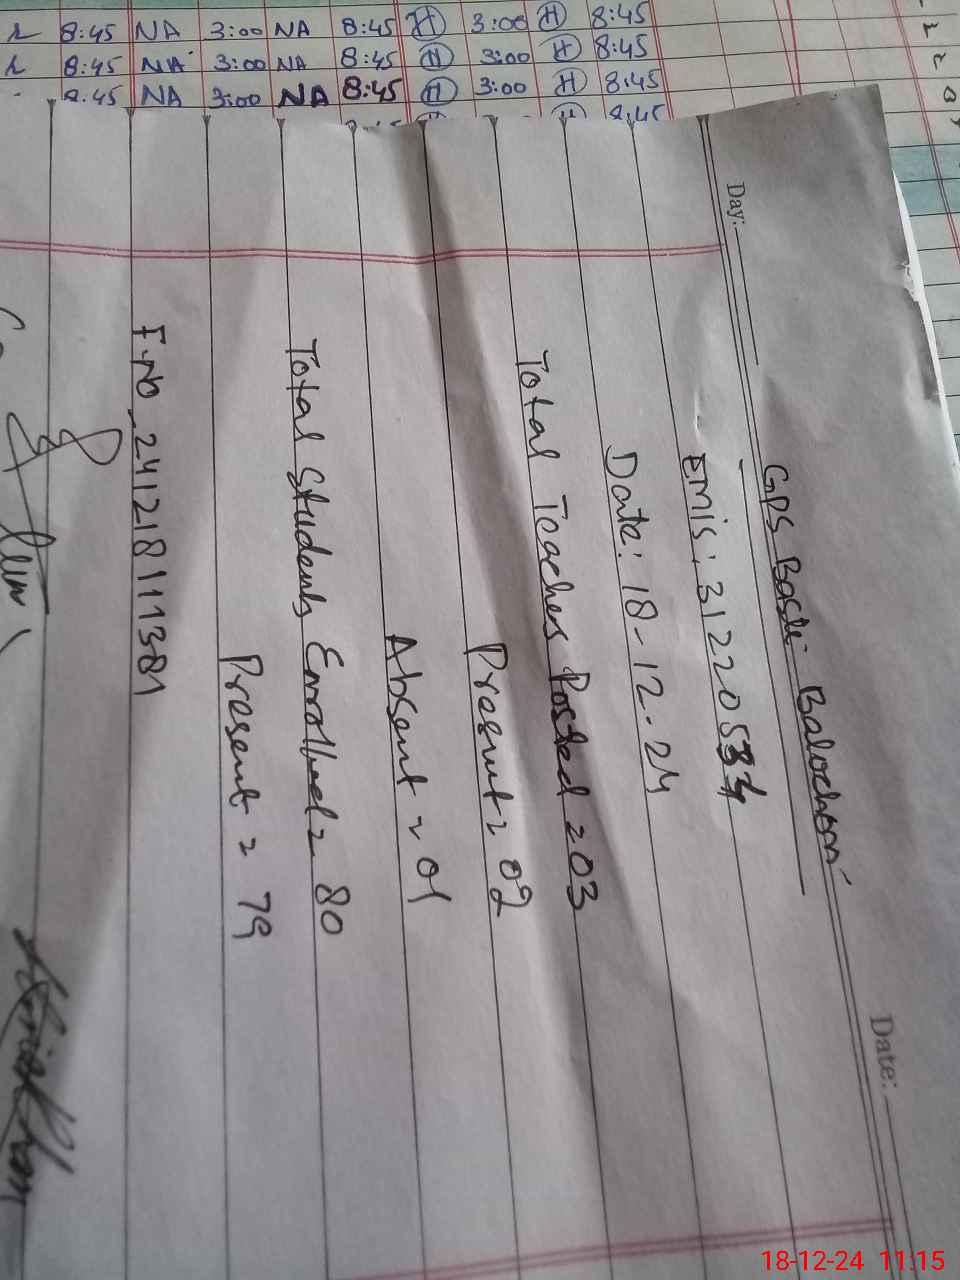 8:45 NA 3:00 NA 8:45 H 3:00 H 8:45
8:45 NA 3:00 NA 8:45 H 3:00 H 8:45
8:45 NA 3:00 NA 8:45 H 3:00 H 8:45
8:45
Day:
Date:
GPS Basti Balochan
EMIS: 31220534
Date: 18-12-24
Total Teachers Posted = 03
Present = 02
Absent = 01
Total Students Enrolled = 80
Present = 79
F.No _ 241218111381
18-12-24 11:15